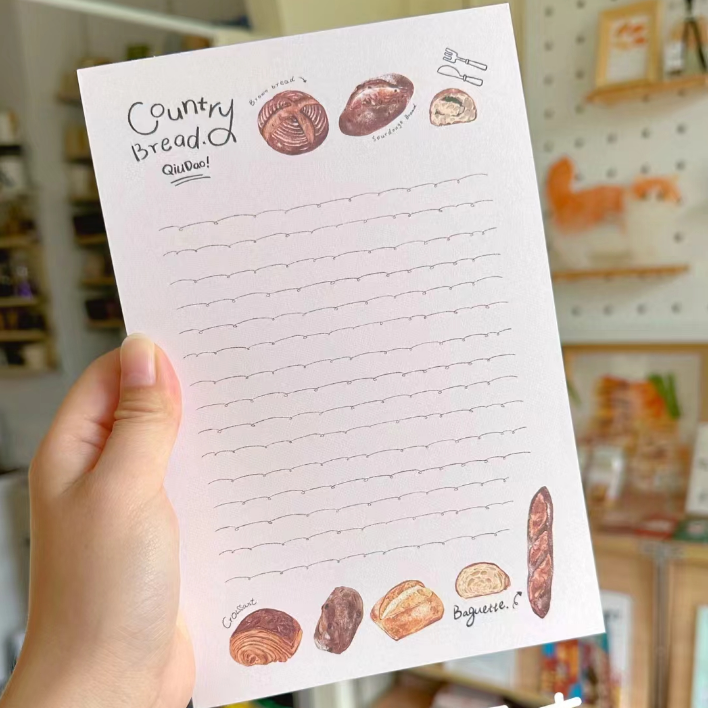 Country
Bread.
QiuDao!
Brown bread
Sourdough Bread
Croissant
Baguette.